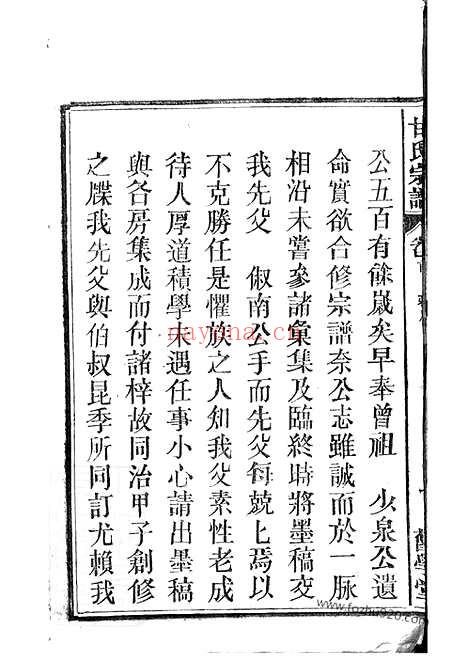 甘氏宗譜
卷首
舊學堂
公五百有餘嵗矣早奉曾祖　少泉公遺
命實欲合修宗譜奈公志雖誠而於一脉
相沿未嘗參諸彙集及臨終時將墨稿交
我先父　俶南公手而先父每兢〻焉以
不克勝任是懼族之人知我父素性老成
待人厚道積學未遇任事小心請出墨稿
與各房集成而付諸梓故同治甲子創修
之牒我先父與伯叔昆季所同訂尤賴我
nayona.cn
www.fozhu920.com